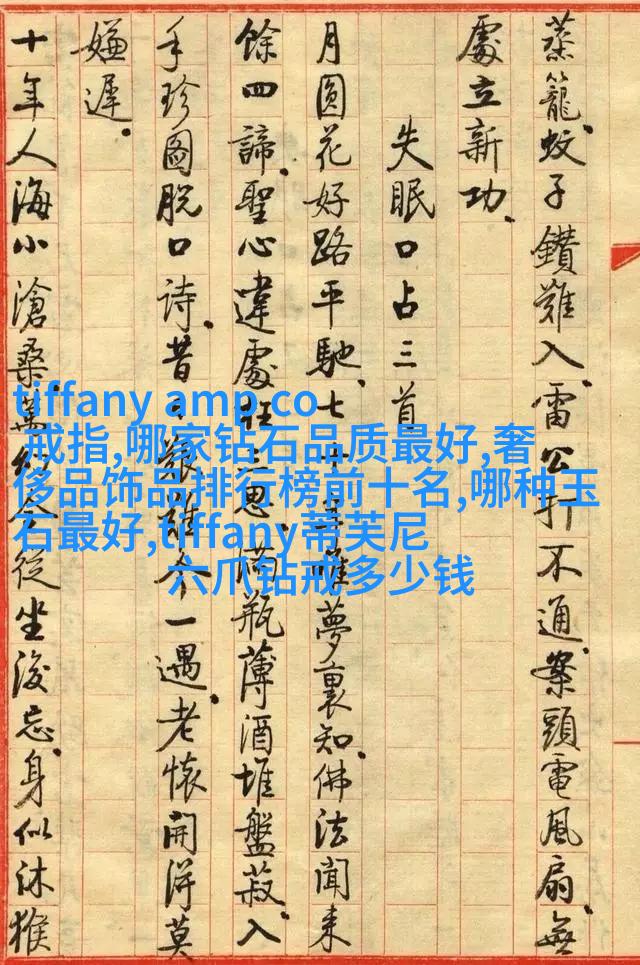 蒸籠。蚊子鑽難入。雷公打不通。案頭電風扇。無
處立新功。
失眠口占三首
月圓花好路平馳。七夢裏知。佛法聞來
餘四諦。聖心違處枉三思。滿瓶薄酒堆盤菽。入
手珍圖脫口詩。昔艱難一遇。老懷開得莫
嫌遲。
十年人海小滄桑。從坐後忘。身似沐猴
tiffany amp co
戒指,哪家钻石品质最好,奢
侈品饰品排行榜前十名,哪种玉
石最好,tiffany蒂芙尼
六爪钻戒多少钱